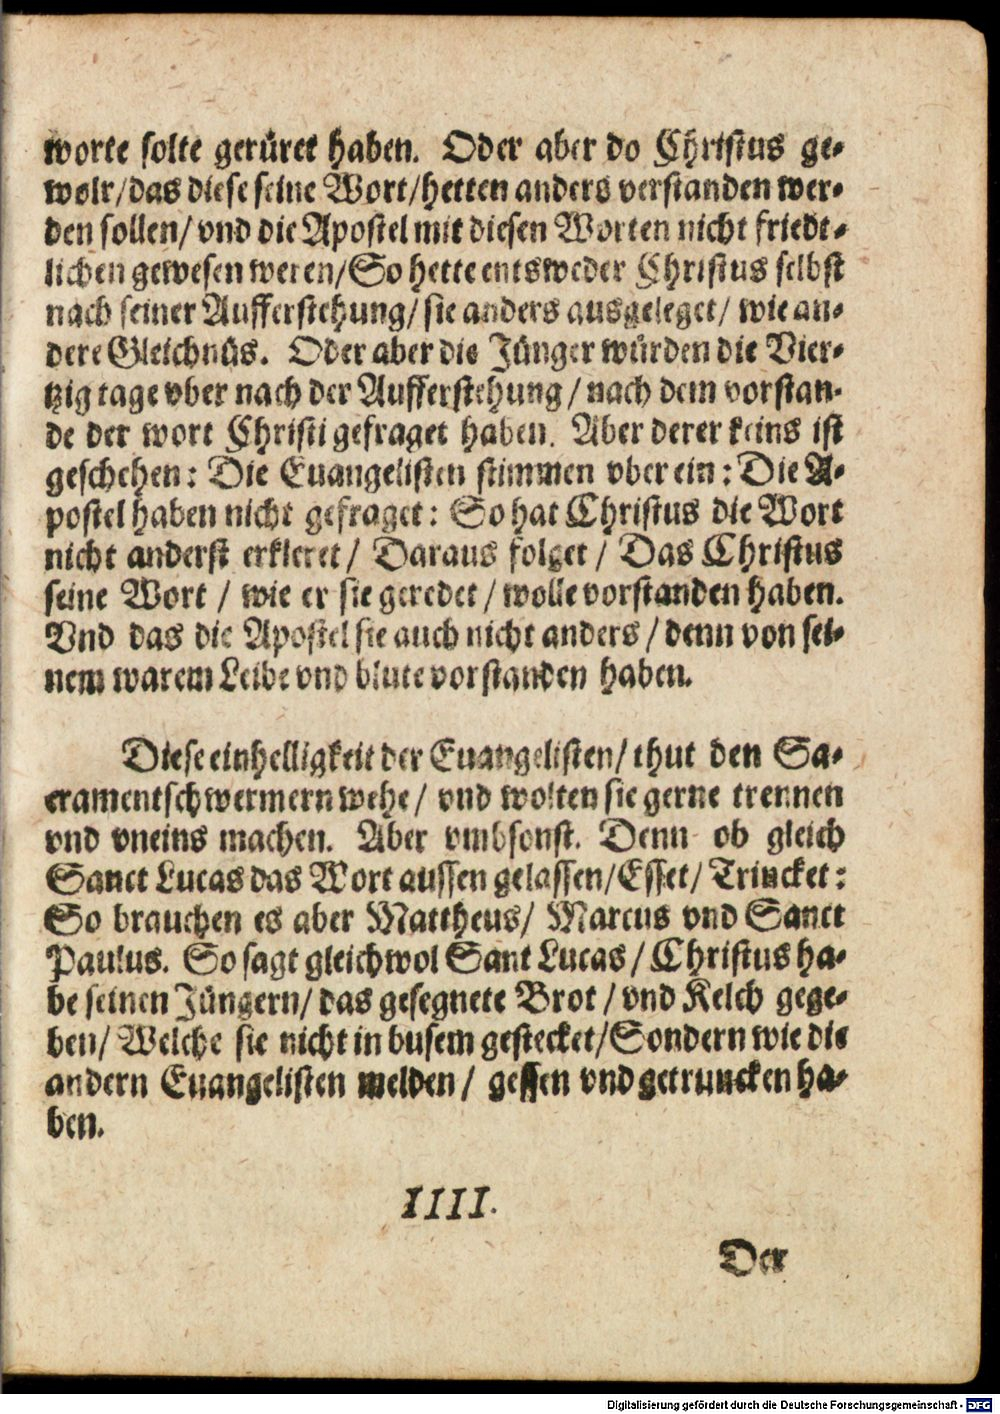 worte solte gerüret haben. Oder aber do Christus ge-
wolt/das diese seine Wort/hetten anders verstanden wer-
den sollen/ vnd die Apostel mit diesen Worten nicht friedt-
lichen gewesen weren/So hette entsweder Christus selbst
nach seiner Aufferstehung/ sie anders ausgeleget/ wie an-
dere Gleichnüs. Oder aber die Jünger würden die Vier-
tzig tage vber nach der Aufferstehung / nach dem vorstan-
de der wort Christi gefraget haben. Aber derer keins ist
geschehen: Die Euangelisten stimmen vber ein: Die A-
postel haben nicht gefraget: So hat Christus die Wort
nicht anderst erkleret / Daraus folget / Das Christus
seine Wort / wie er sie geredet / wolle vorstanden haben.
Vnd das die Apostel sie auch nicht anders / denn von sei-
nem warem Leibe vnd blute vorstanden haben.
Diese einhelligkeit der Euangelisten/ thut den Sa-
cramentschwermern wehe / vnd wolten sie gerne trennen
vnd vneins machen. Aber vmbsonst. Denn ob gleich
Sanct Lucas das Wort aussen gelassen/Esset/ Trincket:
So brauchen es aber Mattheus/ Marcus vnd Sanct
Paulus. So sagt gleichwol Sant Lucas / Christus ha-
be seinen Jüngern/ das gesegnete Brot / vnd Kelch gege-
ben/ Welche sie nicht in busem gestecket/Sondern wie die
andern Euangelisten melden / gessen vnd getruncken ha-
ben.
IIII.
Der
Digitalisierung gefördert durch die Deutsche Forschungsgemeinschaft - DFG